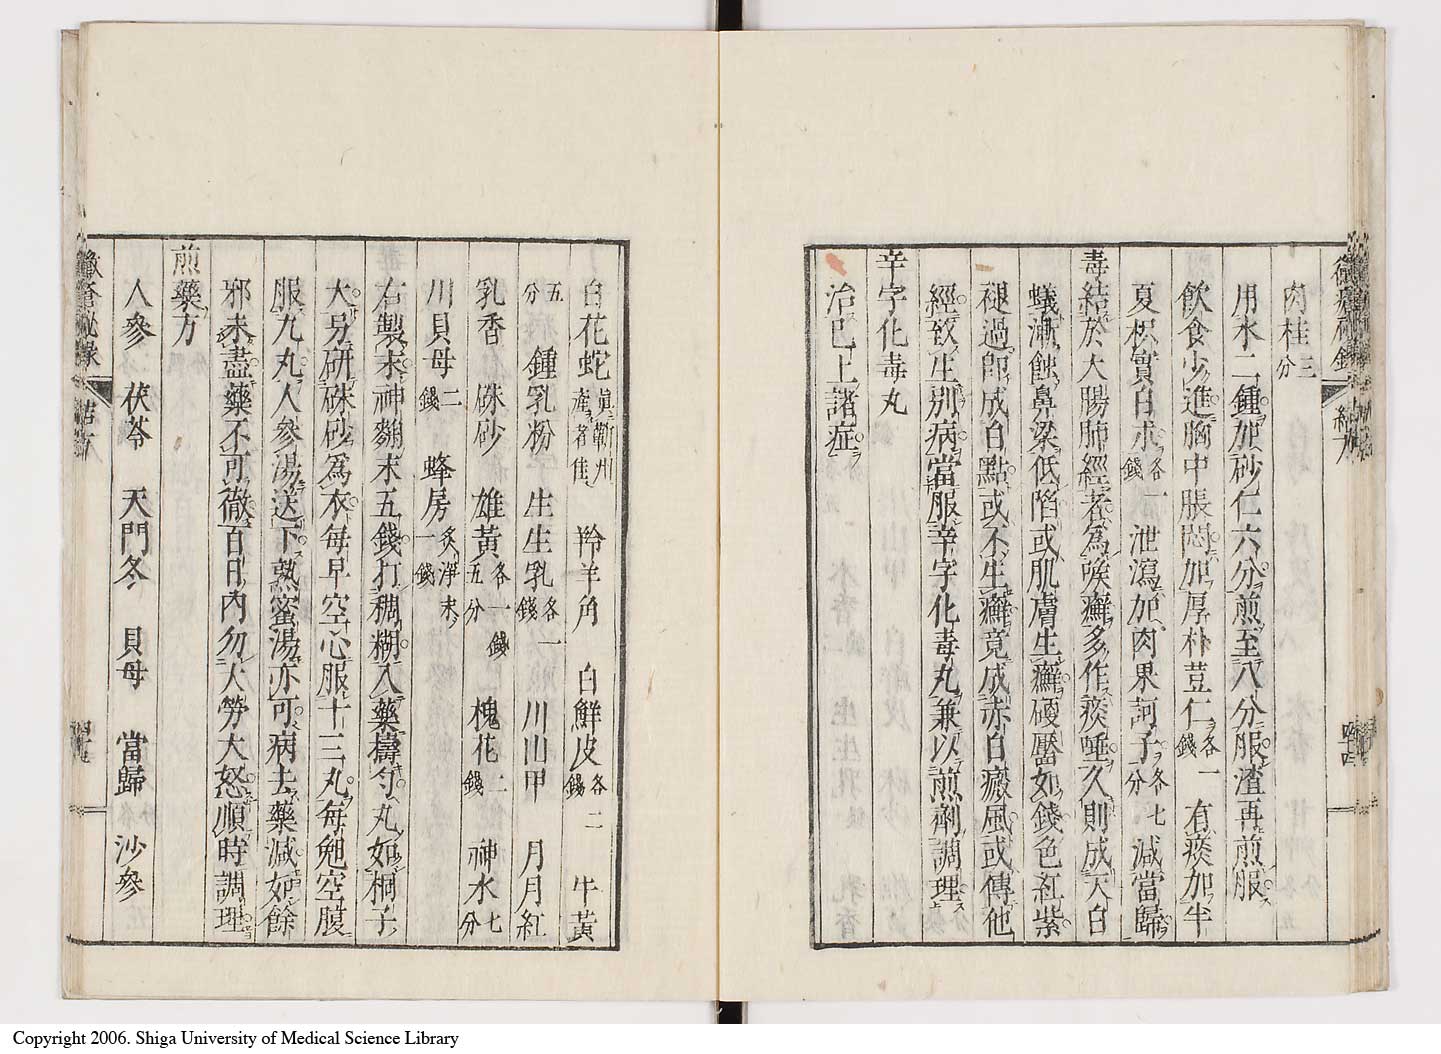 肉桂三分
用水二鍾加砂仁六分煎至八分服渣再煎服
飲食少進胸中脹悶加厚朴荳仁各一錢 有痰加半
夏枳實白朮各一錢 泄瀉加肉果訶子各七分 減當歸
毒結於大腸肺經者為喉癬多作痰唾久則成天白
蟻漸蝕鼻梁低陷或肌膚生癬硬靨如錢色紅紫
褪過即成白點或不生癬竟成赤白癜風或傳他
經致生別病當服辛字化毒丸兼以煎劑調理
辛字化毒丸
治已上諸症
白花蛇真蘄州產者佳 羚羊角 白鮮皮各二錢 牛黃
五分 鍾乳粉 生生乳各一錢 川山甲 月月紅
乳香 硃砂 雄黃各一錢五分 槐花二錢 神水七分
川貝母二錢 蜂房炙淨末一錢
右製末神麯末五錢打稠糊入藥擣勻丸如桐子
大另研硃砂為衣每早空心服十三丸每晚空腹
服九丸人參湯送下熟蜜湯亦可病去藥減如餘
邪未盡藥不可徹百日內勿大勞大怒順時調理
煎藥方
人參 茯苓 天門冬 貝母 當歸 沙參
黴瘡秘錄
Copyright 2006. Shiga University of Medical Science Library